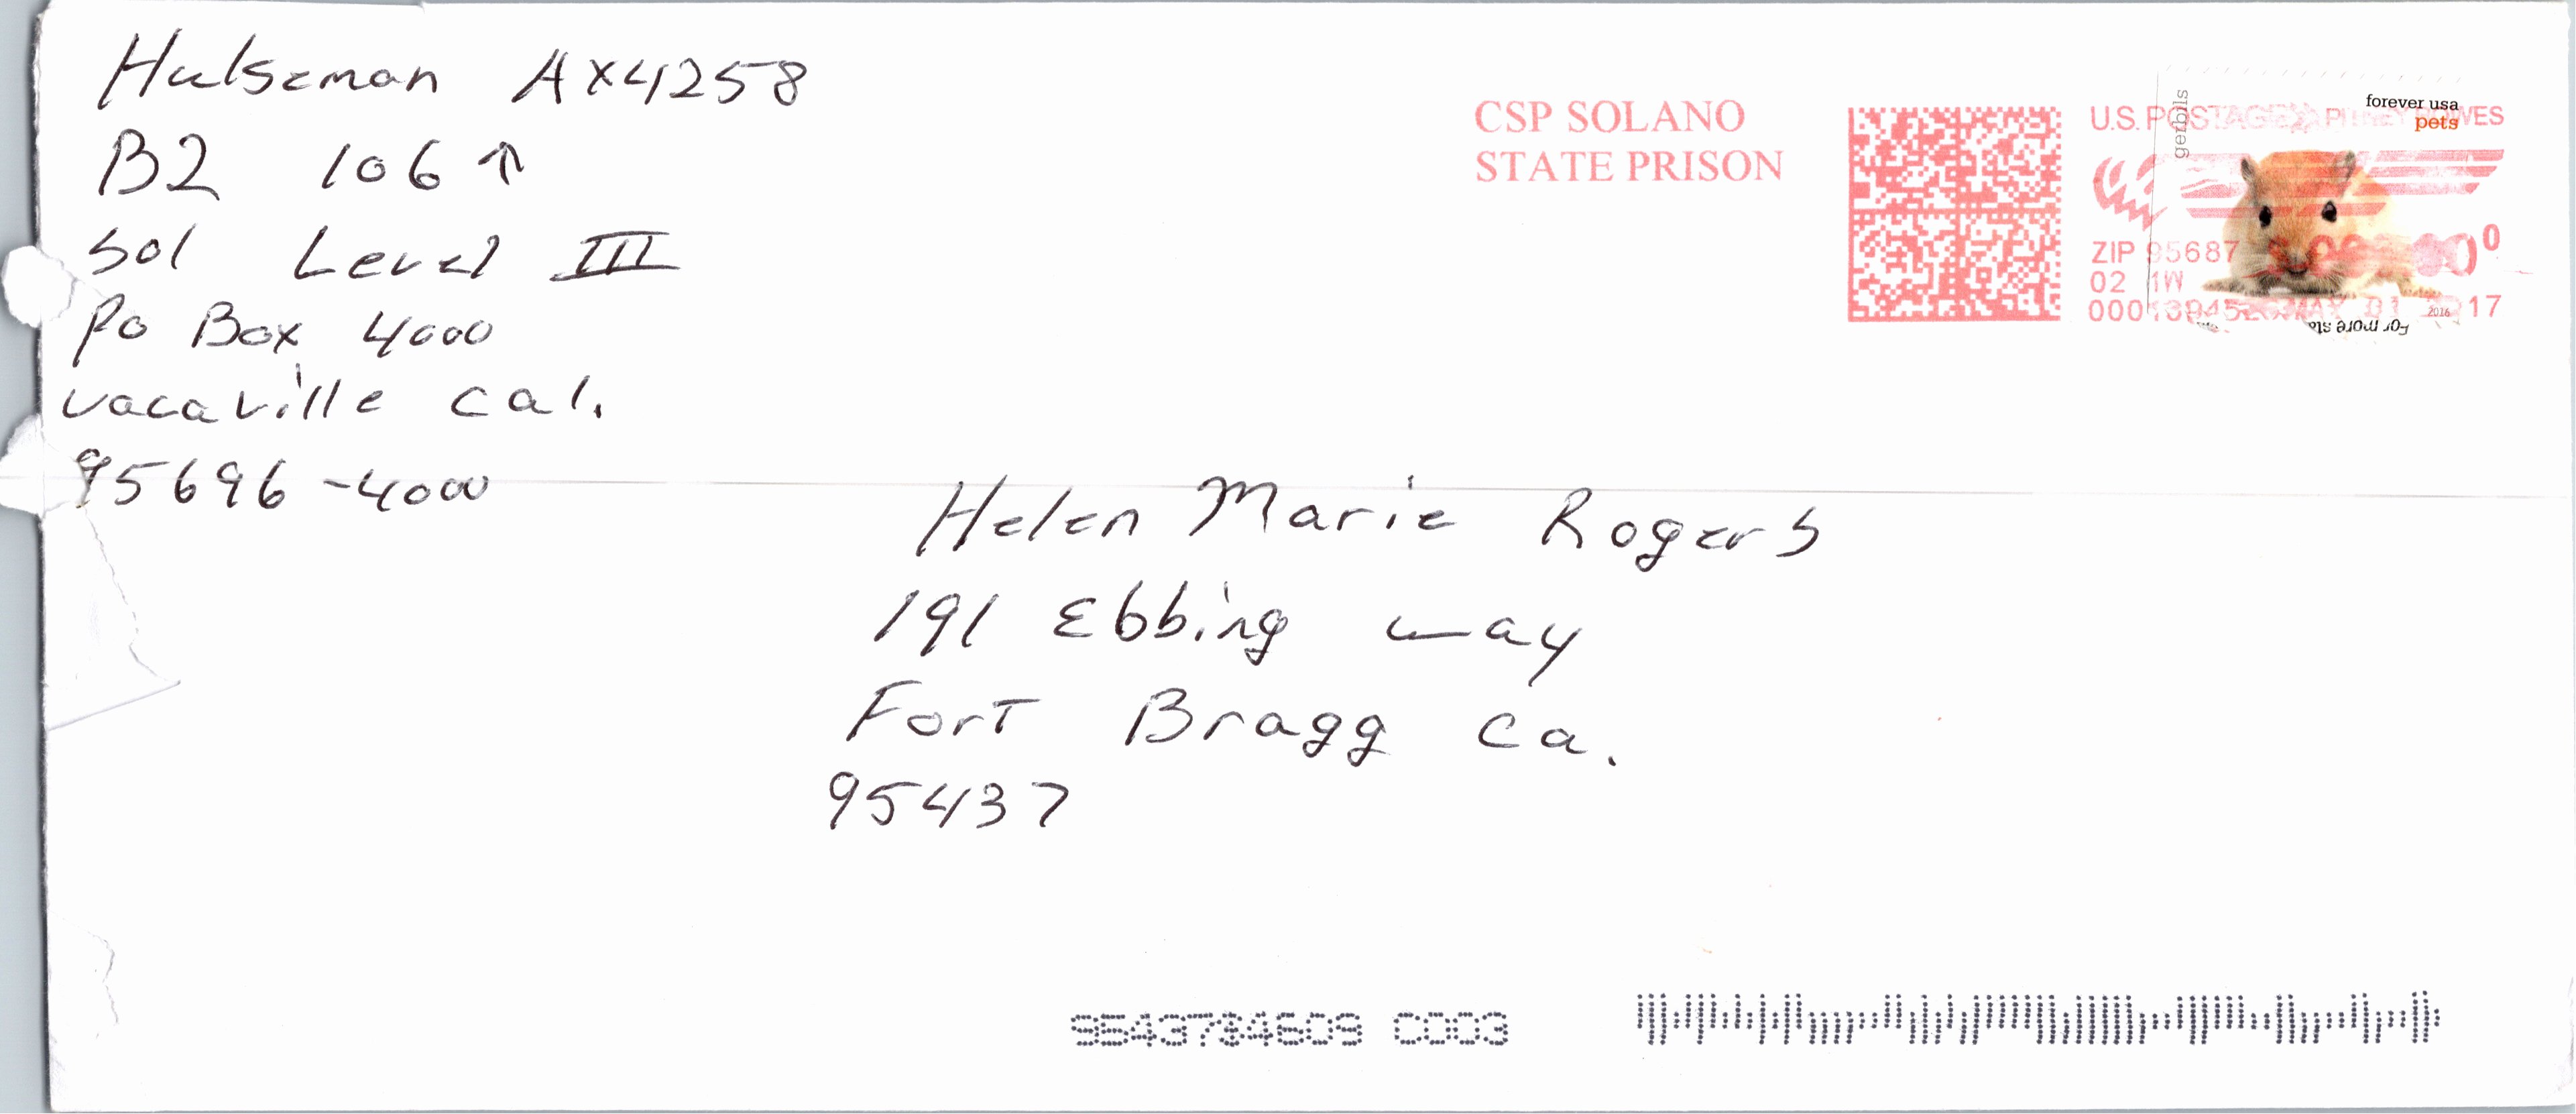 Hulseman AX4258
B2 106 ↑
Sol Level III
Po Box 4000
vacaville cal.
95696-4000
CSP SOLANO
STATE PRISON
U.S. POSTAGE PITNEY BOWES
ZIP 95687
02 1W
17
gerbils
forever usa
pets
2016
For more
Helen Marie Rogers
191 Ebbing way
Fort Bragg Ca.
95437
C003